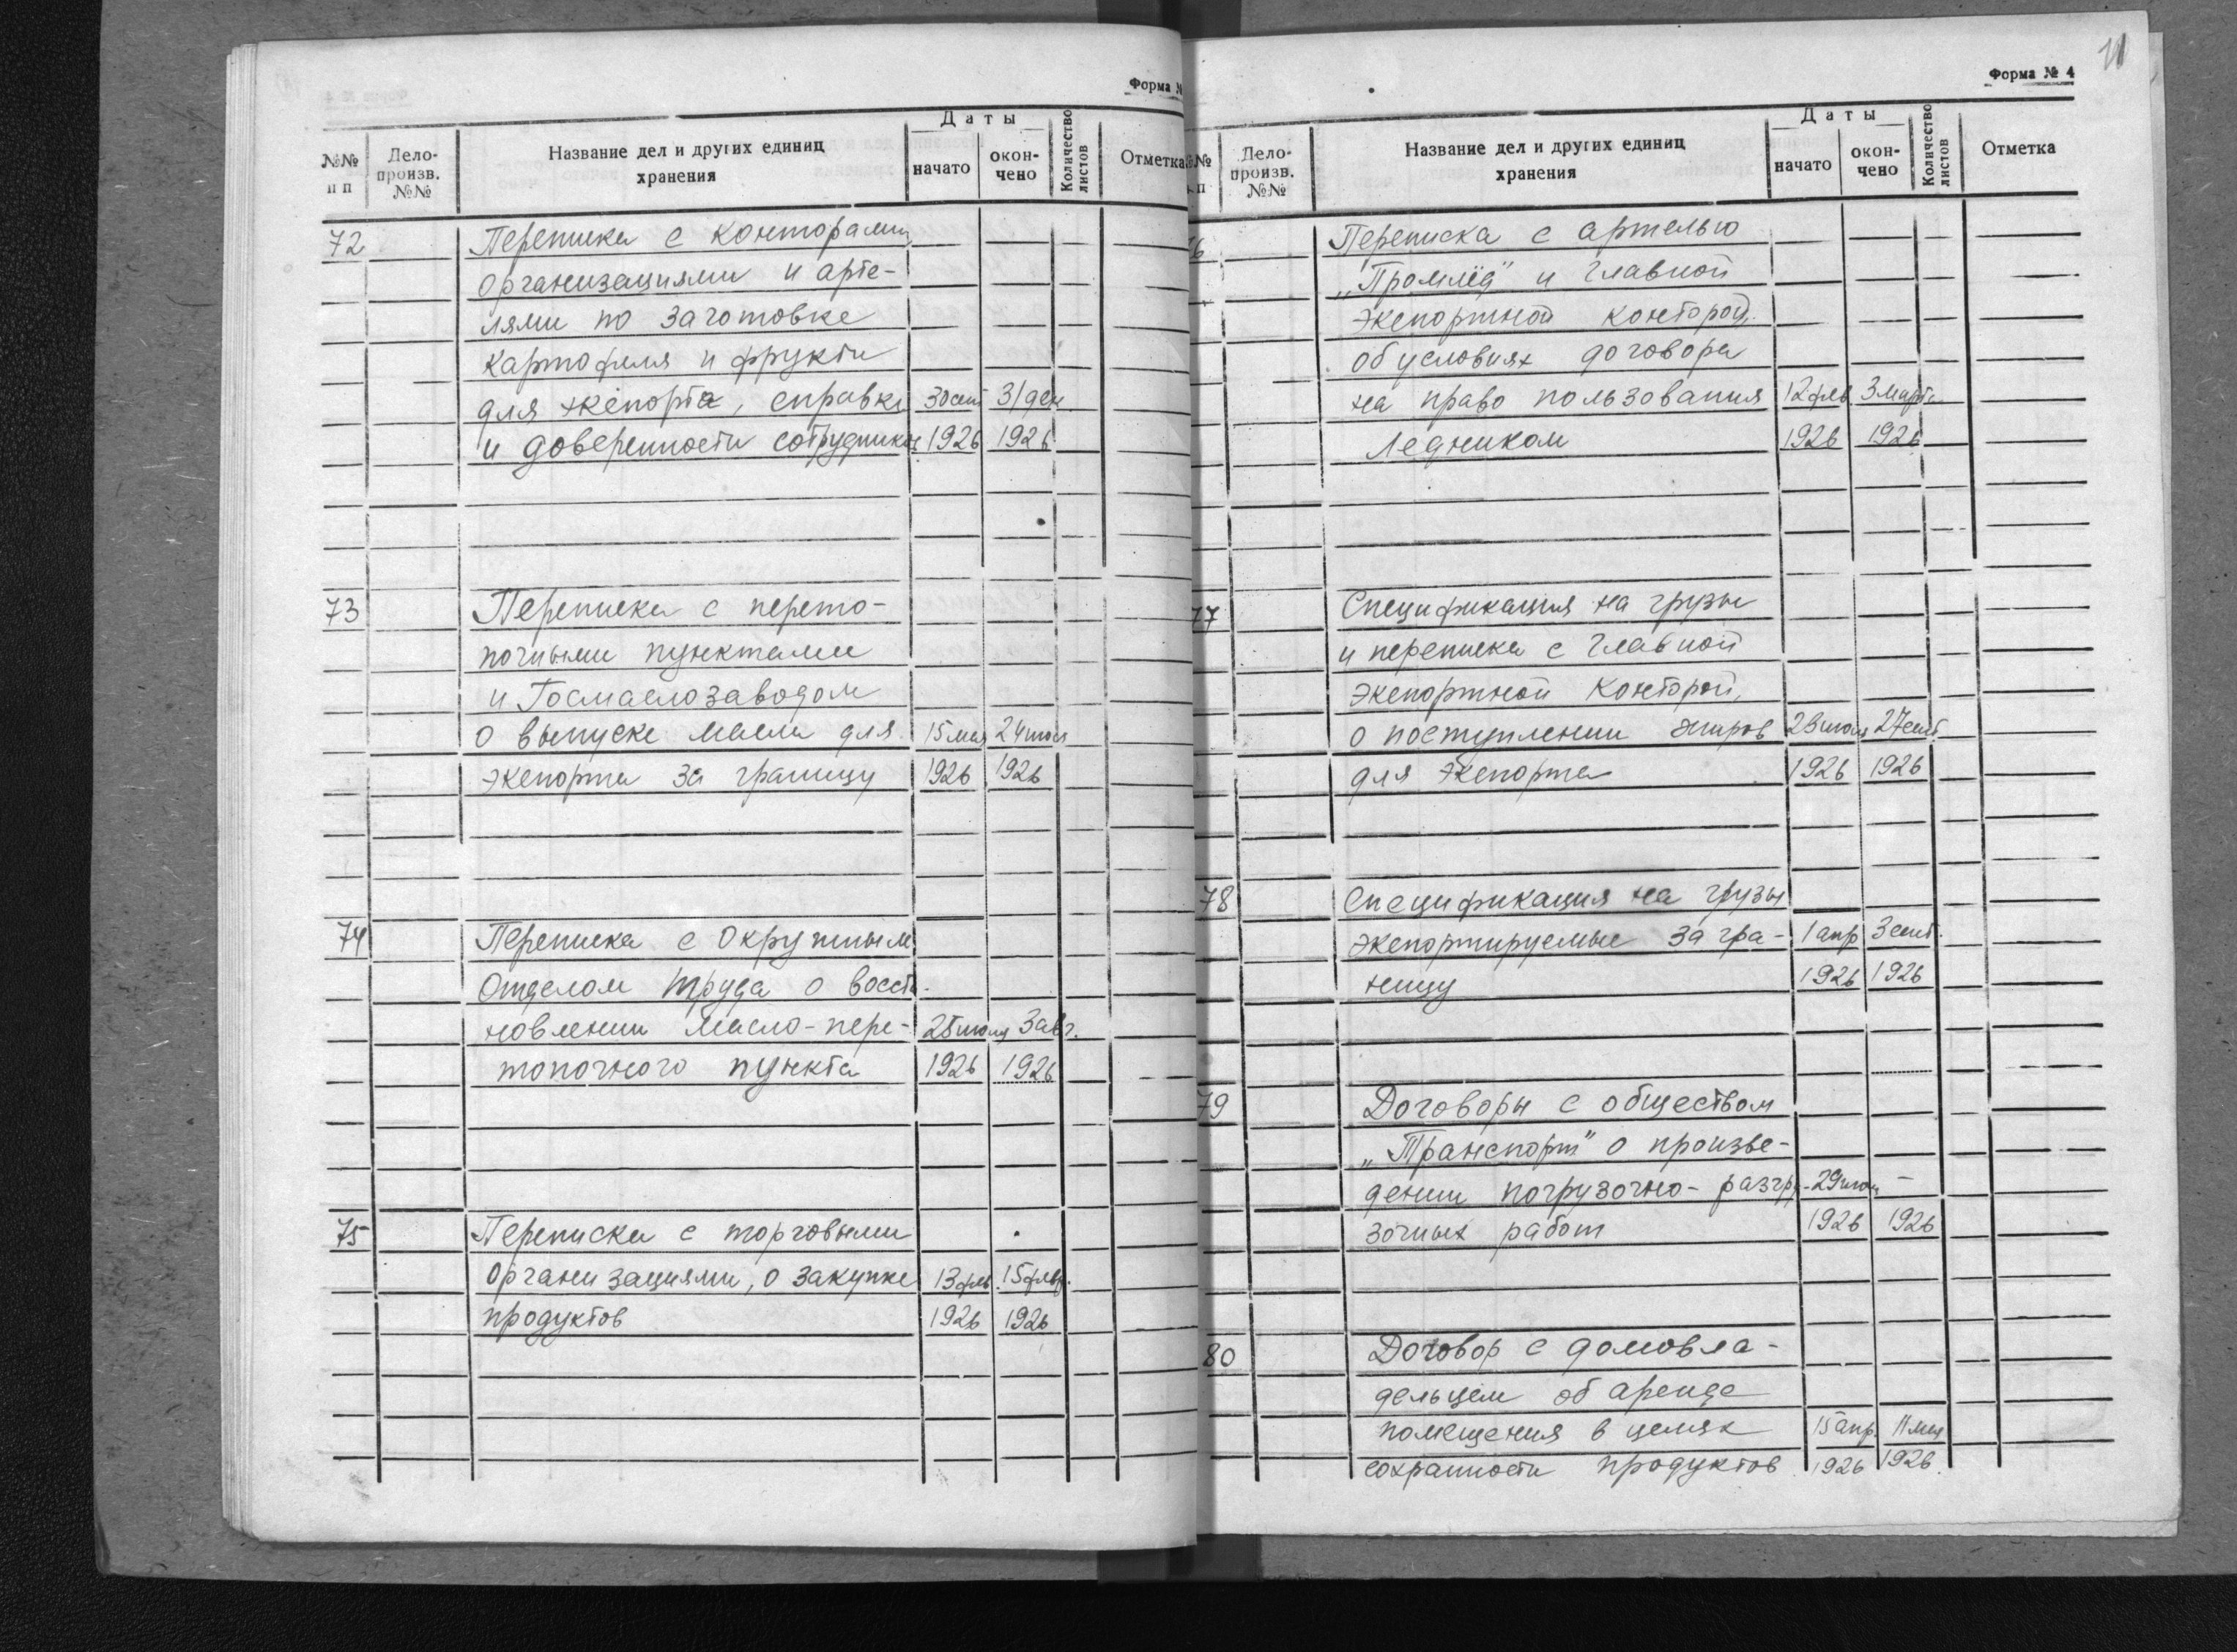 Форма №
№№ п п
Дело-произв. №№
Название дел и других единиц хранения
Даты
начато
окончено
Количество листов
Отметка
72 Переписка с конторами
организациями и арте-
лями по заготовке
картофеля и фрукты
для экспорта, справки 30 сент 31 дек
и доверенности сотрудников 1926 1926
73 Переписка с перето-
почными пунктами
и Госмаслозаводом
о выпуске масла для 15 мая 24 июл
экспорта за границу 1926 1926
74 Переписка с Окружным
Отделом труда о восста-
новлении масло-пере- 28 июня 3 авг.
топочного пункта 1926 1926
75 Переписка с торговыми
организациями, о закупке 13 фев. 15 февр.
продуктов 1926 1926
11
Форма № 4
№№ п
Дело-произв. №№
Название дел и других единиц хранения
Даты
начато
окон-чено
Количество листов
Отметка
76 Переписка с артелью
„Промлёд" и Главной
экспортной конторой,
об условиях договора
на право пользования 12 фев. 3 марта
Ледником 1926 1926
77 Спецификация на грузы
и переписка с Главной
экспортной Конторой,
о поступлении жиров 23 июля 27 сент.
для экспорта 1926 1926
78 Спецификация на грузы
экспортируемые за гра- 1 апр 3 сент.
ницу 1926 1926
79 Договоры с обществом
„Транспорт" о произве-
дении погрузочно-разгру- 29 июня -
зочных работ 1926 1926
80 Договор с домовла-
дельцем об аренде
помещения в целях 15 апр. 11 мая
сохранности продуктов 1926 1926.